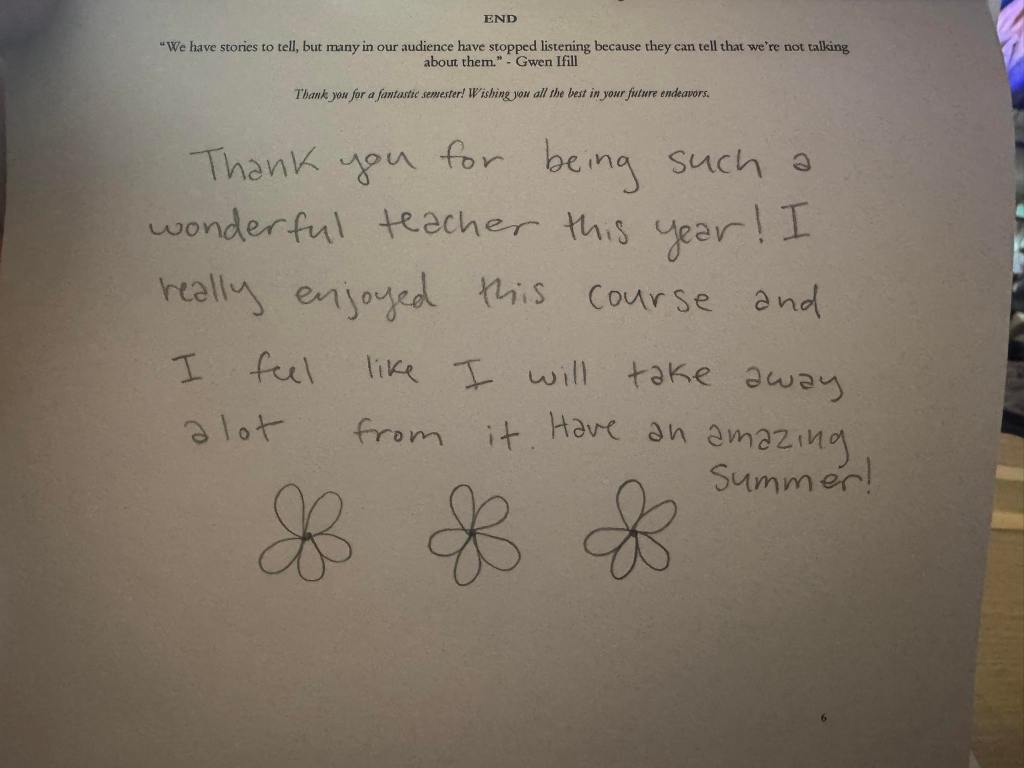 END
"We have stories to tell, but many in our audience have stopped listening because they can tell that we're not talking
about them." - Gwen Ifill
Thank you for a fantastic semester! Wishing you all the best in your future endeavors.
Thank you for being such a
wonderful teacher this year! I
really enjoyed this course and
I feel like I will take away
alot from it. Have an amazing
summer!
6